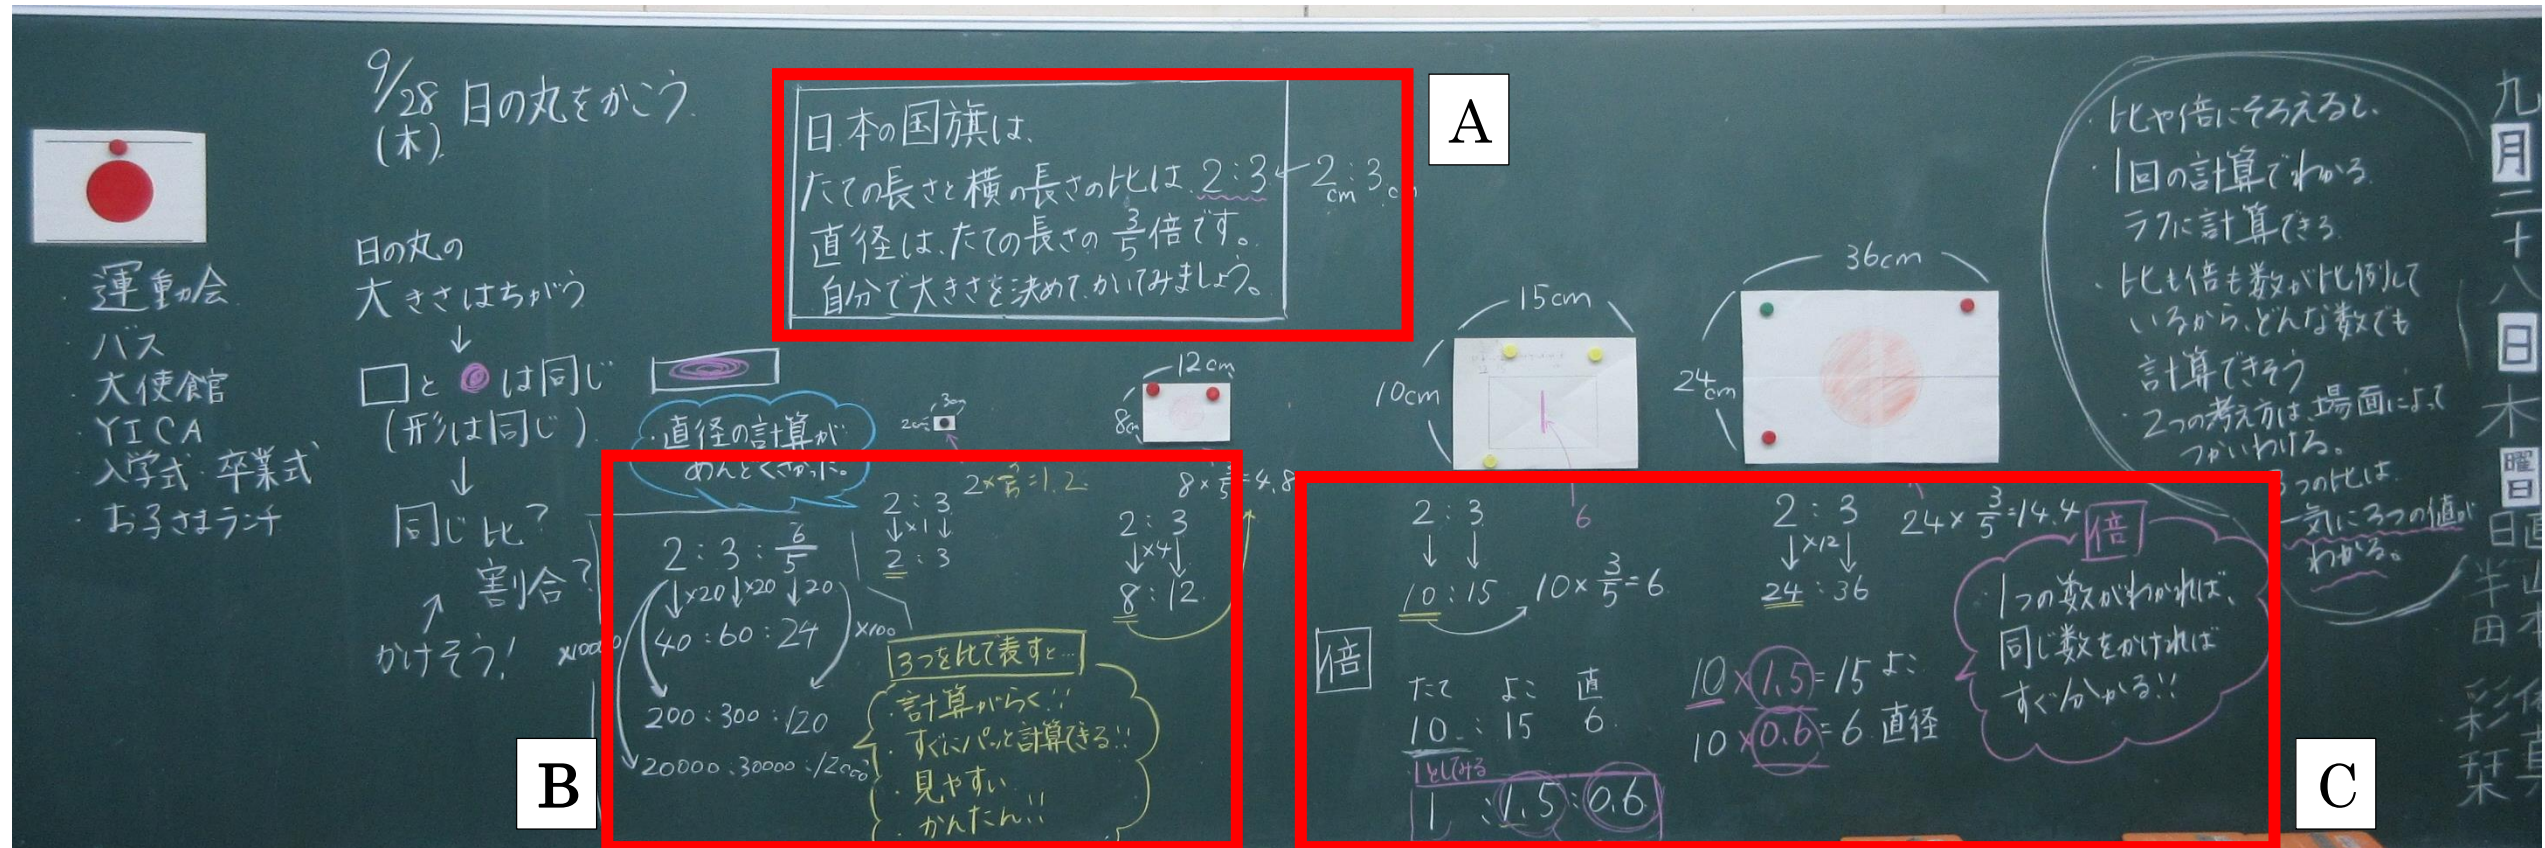 9/28
(木)
日の丸をかこう.
・運動会
・バス
・大使館
・YICA
・入学式・卒業式
・お子さまランチ
日の丸の
大きさはちがう
↓
□と○は同じ
(形は同じ)
↓
同じ比?
割合?
かけそう!
日本の国旗は、
たての長さと横の長さの比は2:3 ← 2cm:3cm
直径は、たての長さの3/5倍です。
自分で大きさを決めて、かいてみましょう。
A
・直径の計算が
めんどくさかった。
2:3:6/5
↓×20↓×20↓20
40:60:24
×100
×10000
200:300:120
20000:30000:12000
B
2cm
3cm
2×3/5=1.2
2:3
↓×1↓
2:3
12cm
8cm
8×3/5=4.8
2:3
↓×4↓
8:12
3つを比で表すと…
・計算がらく!!
・すぐにパッと計算できる!!
・見やすい
・かんたん!!
15cm
10cm
6
2:3
↓ ↓
10:15
10×3/5=6
36cm
24cm
2:3
↓×12↓
24:36
24×3/5=14.4
倍
たて よこ 直
10:15 6
1としてみる
1:1.5:0.6
10×1.5=15 よこ
10×0.6=6 直径
倍
・1つの数がわかれば、
同じ数をかければ
すぐ分かる!!
C
・比や倍にそろえると、
・1回の計算でわかる
ラクに計算できる
・比も倍も数が比例して
いるから、どんな数でも
計算できそう
・2つの考え方は、場面によって
つかいわける。
3つの比は
一気に3つの値が
わかる。
九月二十八日木曜日